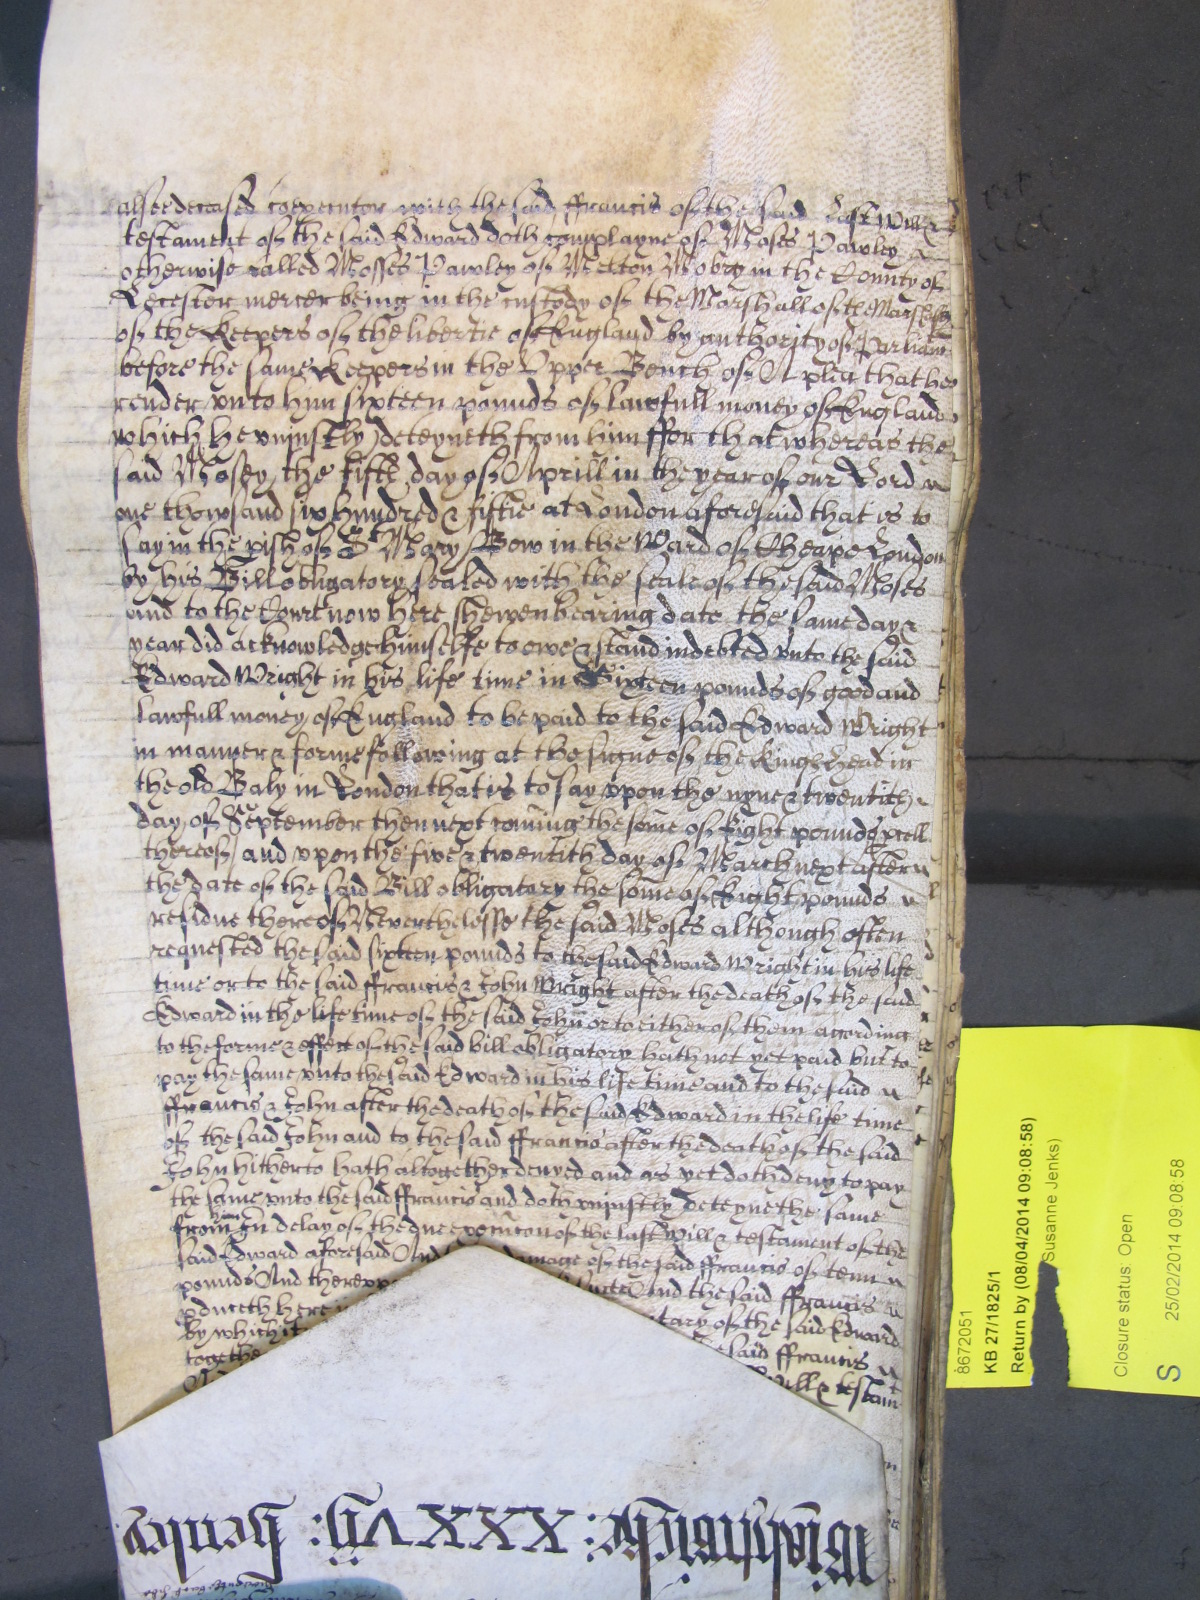 also deceased coexecutor with the said ffrancis of the said last will &
testament of the said Edward doth complayne of Moses Pawley
otherwise called Mosses Pawley of Melton Mobry in the County of
Leicester mercer being in the custody of the Marshall of the Marshalsey
of the Keepers of the libertie of England by authority of Parliamt
before the same Keepers in the Upper Bench of A plea that he
render unto him sixteen pounds of lawfull money of England
which he uniustly deteyneth from him ffor that whereas the
said Mosey the fift day of Aprill in the year of our Lord
one thowsand six hundred & fiftie at London aforesaid that is to
say in the pish of St Mary Bow in the Ward of Cheape London
by his Bill obligatory sealed with the seale of the said Moses
and to the Court now here shewen bearing date the same day &
year did acknowledge himselfe to owe & stand indebted unto the said
Edward Wright in his life time in Sixteen pounds of good and
lawfull money of England to be paid to the said Edward Wright
in manner & forme following at the signe of the Kings Head in
the old Baly in London that is to say upon the nyne & twentith
day of September then next coming the some of Eight pounds pcell
thereof and upon the five & twentith day of March next after
the date of the said Bill obligatory the some of Eight pounds
residue thereof Neverthelesse the said Moses although often
requested the said sixteen pounds to the said Edward Wright in his life
time or to the said ffrancis & John Wright after the death of the said
Edward in the life time of the said John or to either of them according
to the forme & effect of the said bill obligatory hath not yet paid but to
pay the same unto the said Edward in his life time and to the said
ffrancis & John after the death of the said Edward in the life time
of the said John and to the said ffrancis after the death of the said
John hitherto hath altogether denyed and as yet doth deny to pay
the same unto the said ffrancis and doth uniustly deteyne the same
from him in delay of the due execucon of the last will & testament of the
said Edward aforesaid And damage of the said ffrancis of tenn
pounds And thereupp And the said ffrancis
pduceth here in tary of the said Edward
by which it said ffrancis
togethe Will & testam
Midhellmas
Wiahtwiche: XXXVII: Henley
8672051
KB 27/1825/1
Return by (08/04/2014 09:08:58)
Susanne Jenks)
Closure status: Open
S
25/02/2014 09:08:58